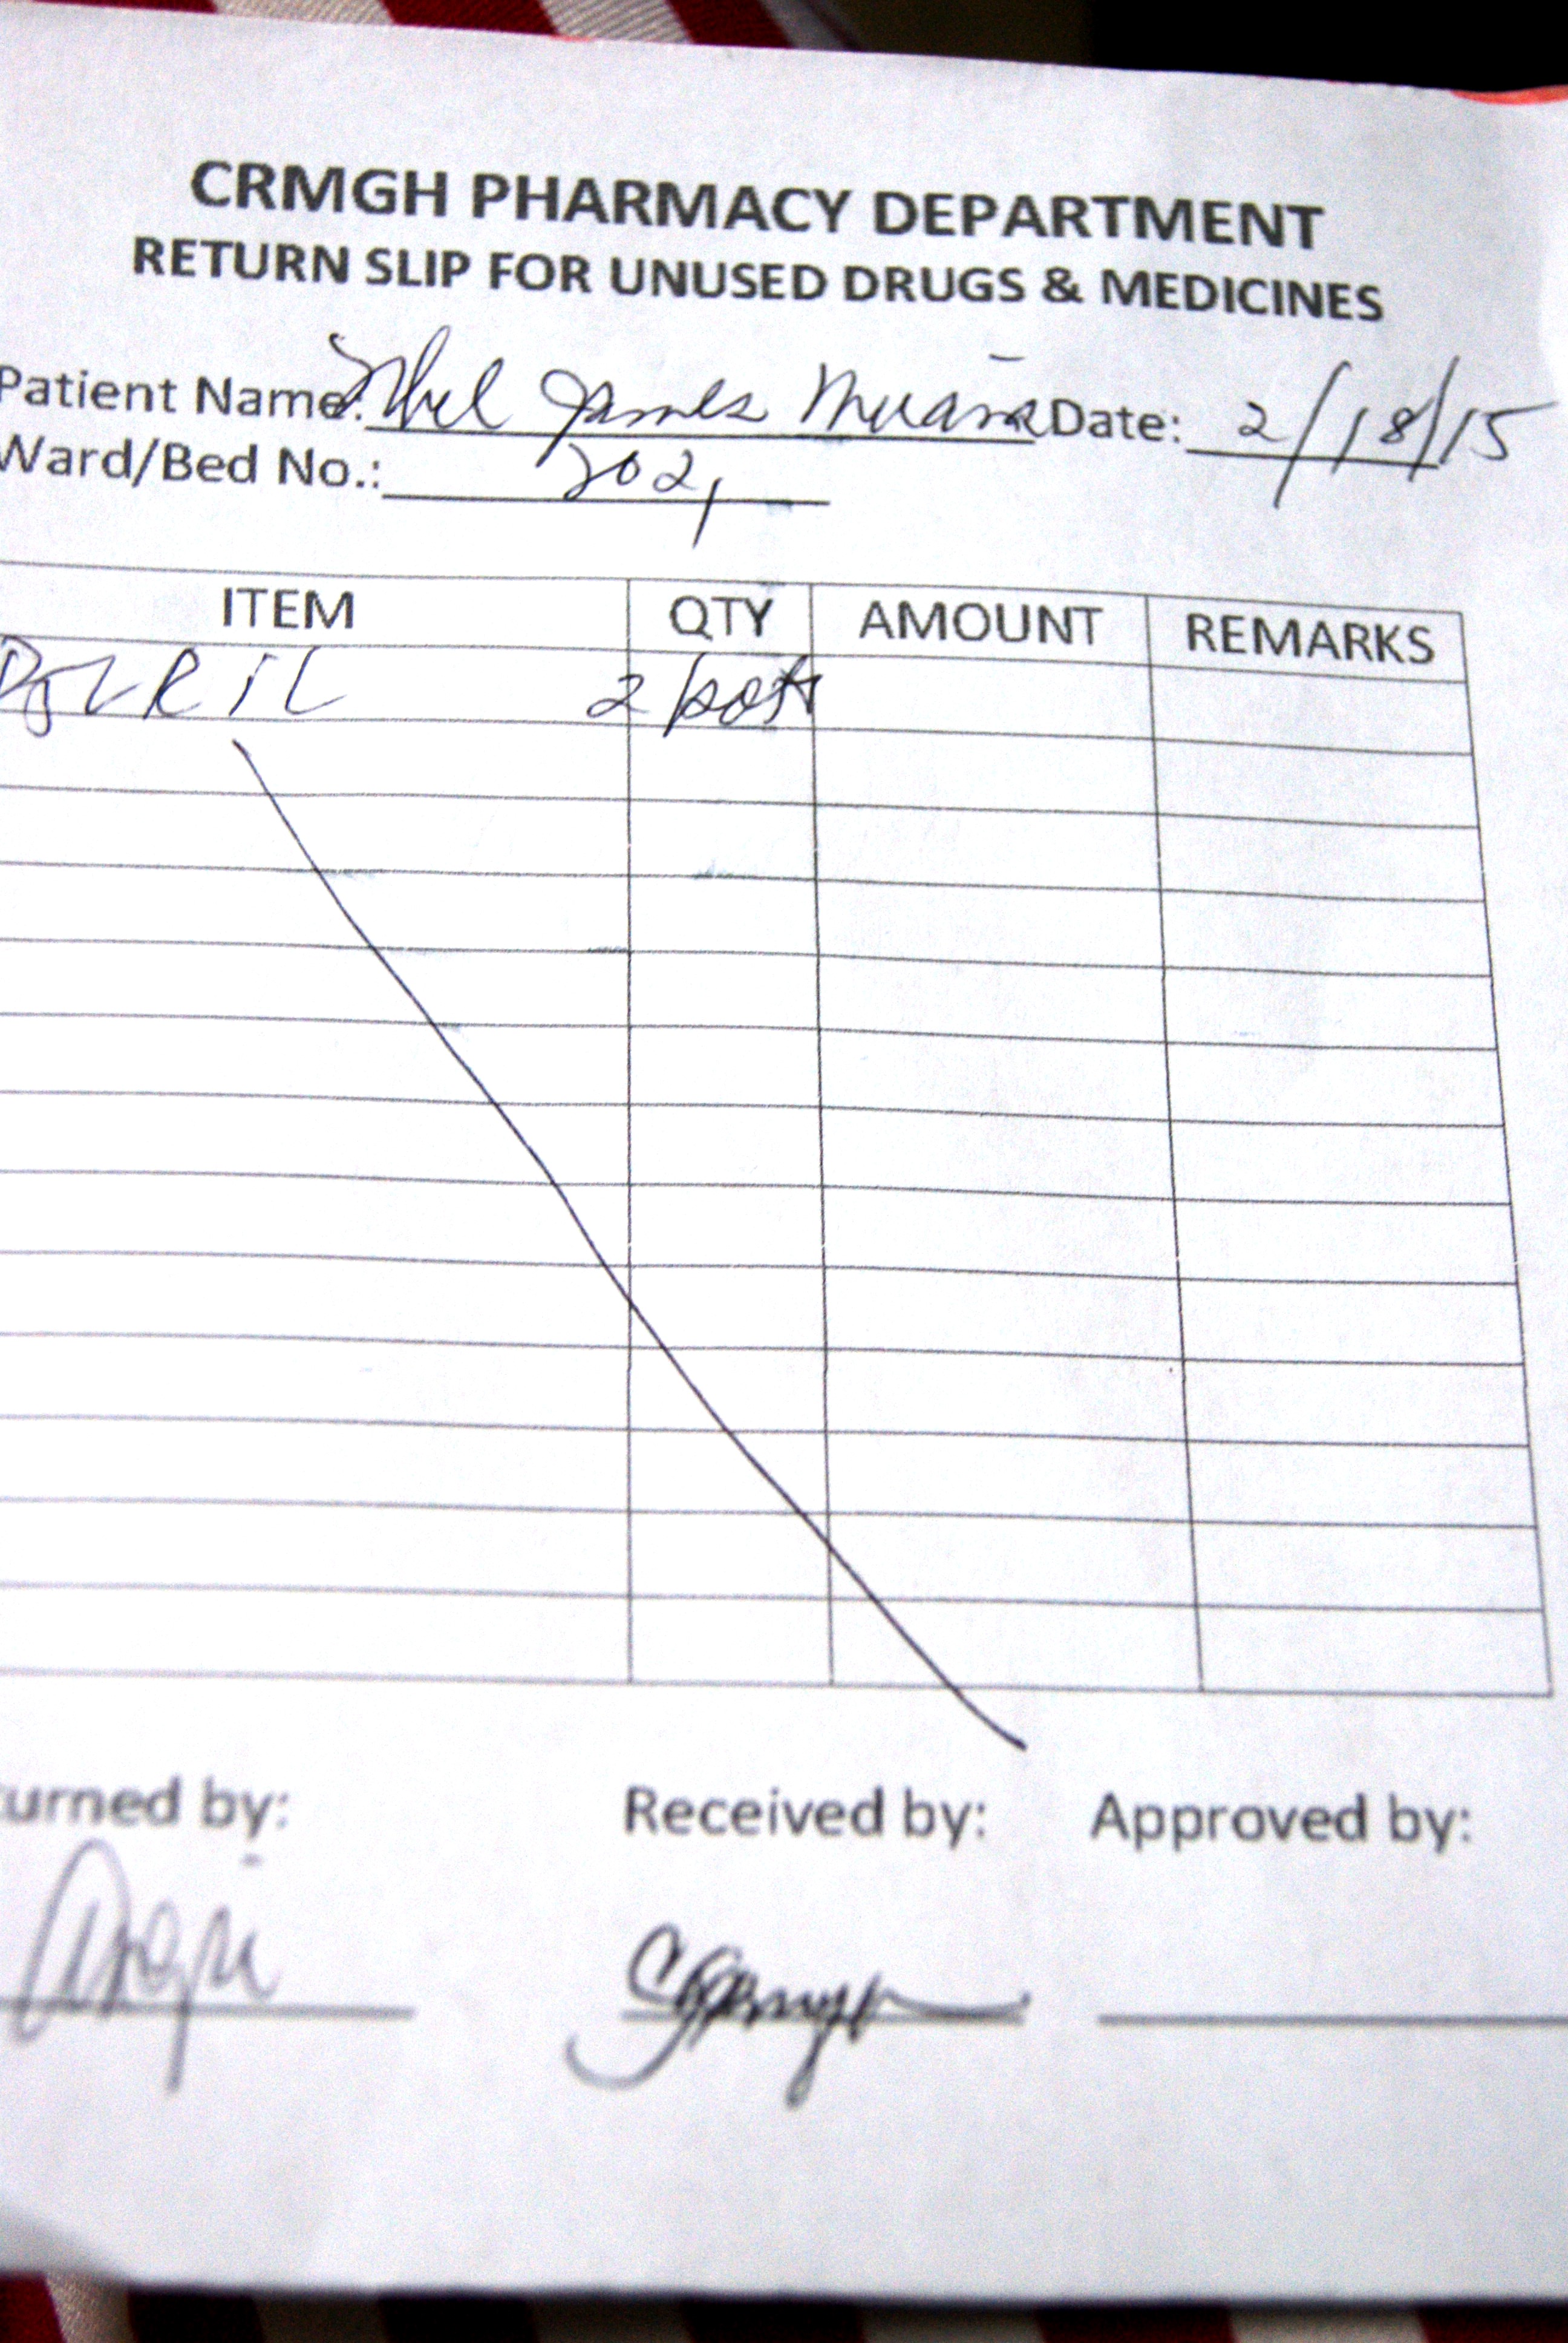 CRMGH PHARMACY DEPARTMENT
RETURN SLIP FOR UNUSED DRUGS & MEDICINES
Patient Name: James Date: 2/18/15
Ward/Bed No.: 202
ITEM QTY AMOUNT REMARKS
1L 2
urned by: Received by: Approved by: